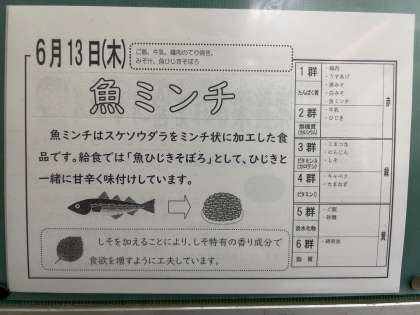 6月13日(木)
ご飯、牛乳、鶏肉のてり焼き、
みそ汁、魚ひじきそぼろ
魚ミンチ
魚ミンチはスケソウダラをミンチ状に加工した食
品です。給食では「魚ひじきそぼろ」として、ひじきと
一緒に甘辛く味付けしています。
しそを加えることにより、しそ特有の香り成分で
食欲を増すように工夫しています。
1群
たんぱく質
・鶏肉
・うすあげ
・赤みそ
・白みそ
・魚ミンチ
2群
無機質
(カルシウム)
・牛乳
・ひじき
赤
3群
ビタミンA
(カロテン)
・こまつな
・にんじん
・しそ
4群
ビタミンC
・キャベツ
・たまねぎ
緑
5群
炭水化物
・ご飯
・砂糖
6群
脂質
黄